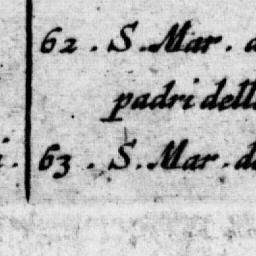 62. S. Mar. d
padri dell
i. 63. S. Mar. de